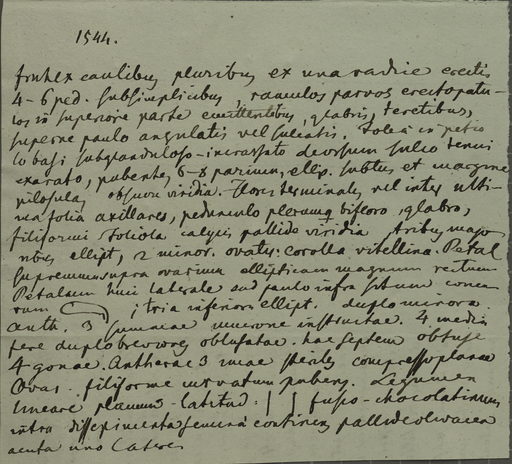 1544.
frutex caulibus pluribus ex una radice erectis
4-6 ped. subsimplicibus, ramulos parvos erectopatu-
los in superiore parte emittentibus, glabris, teretibus,
superne paulo angulatis vel sulcatis. Folia in petio
lo basi subglanduloso-incrassato deorsum sulco tenui
exarato, pubente, 6-8 parium, ellip. subtus et margine
pilosulas obscure viridia. Flores terminales vel inter ulti-
ma folia axillares, pedunculo plerumq bifloro, glabro,
filiformi foliola calycis pallide viridia tribus majo
ribus ellipt, 2 minor. ovatis: corolla vitellina. Petal
supremum supra ovarium ellipticum magnum rectum
Petalum huic laterale sed paulo infra situm conca
vum ; tria inferiora ellipt. duplo minora
anth. 3 mucrone instructae. 4 mediae
fere duplo breviores obtusatae. hae septem obtuse
4gonae. Antherae 3 steriles compressoplanae
Ovar. filiforme curvatum pubens. Legumen
lineare planum - latitud: | | fusco-chocolatinum
intra dissepimenta semina continens pallide olivacea
acuta uno latere